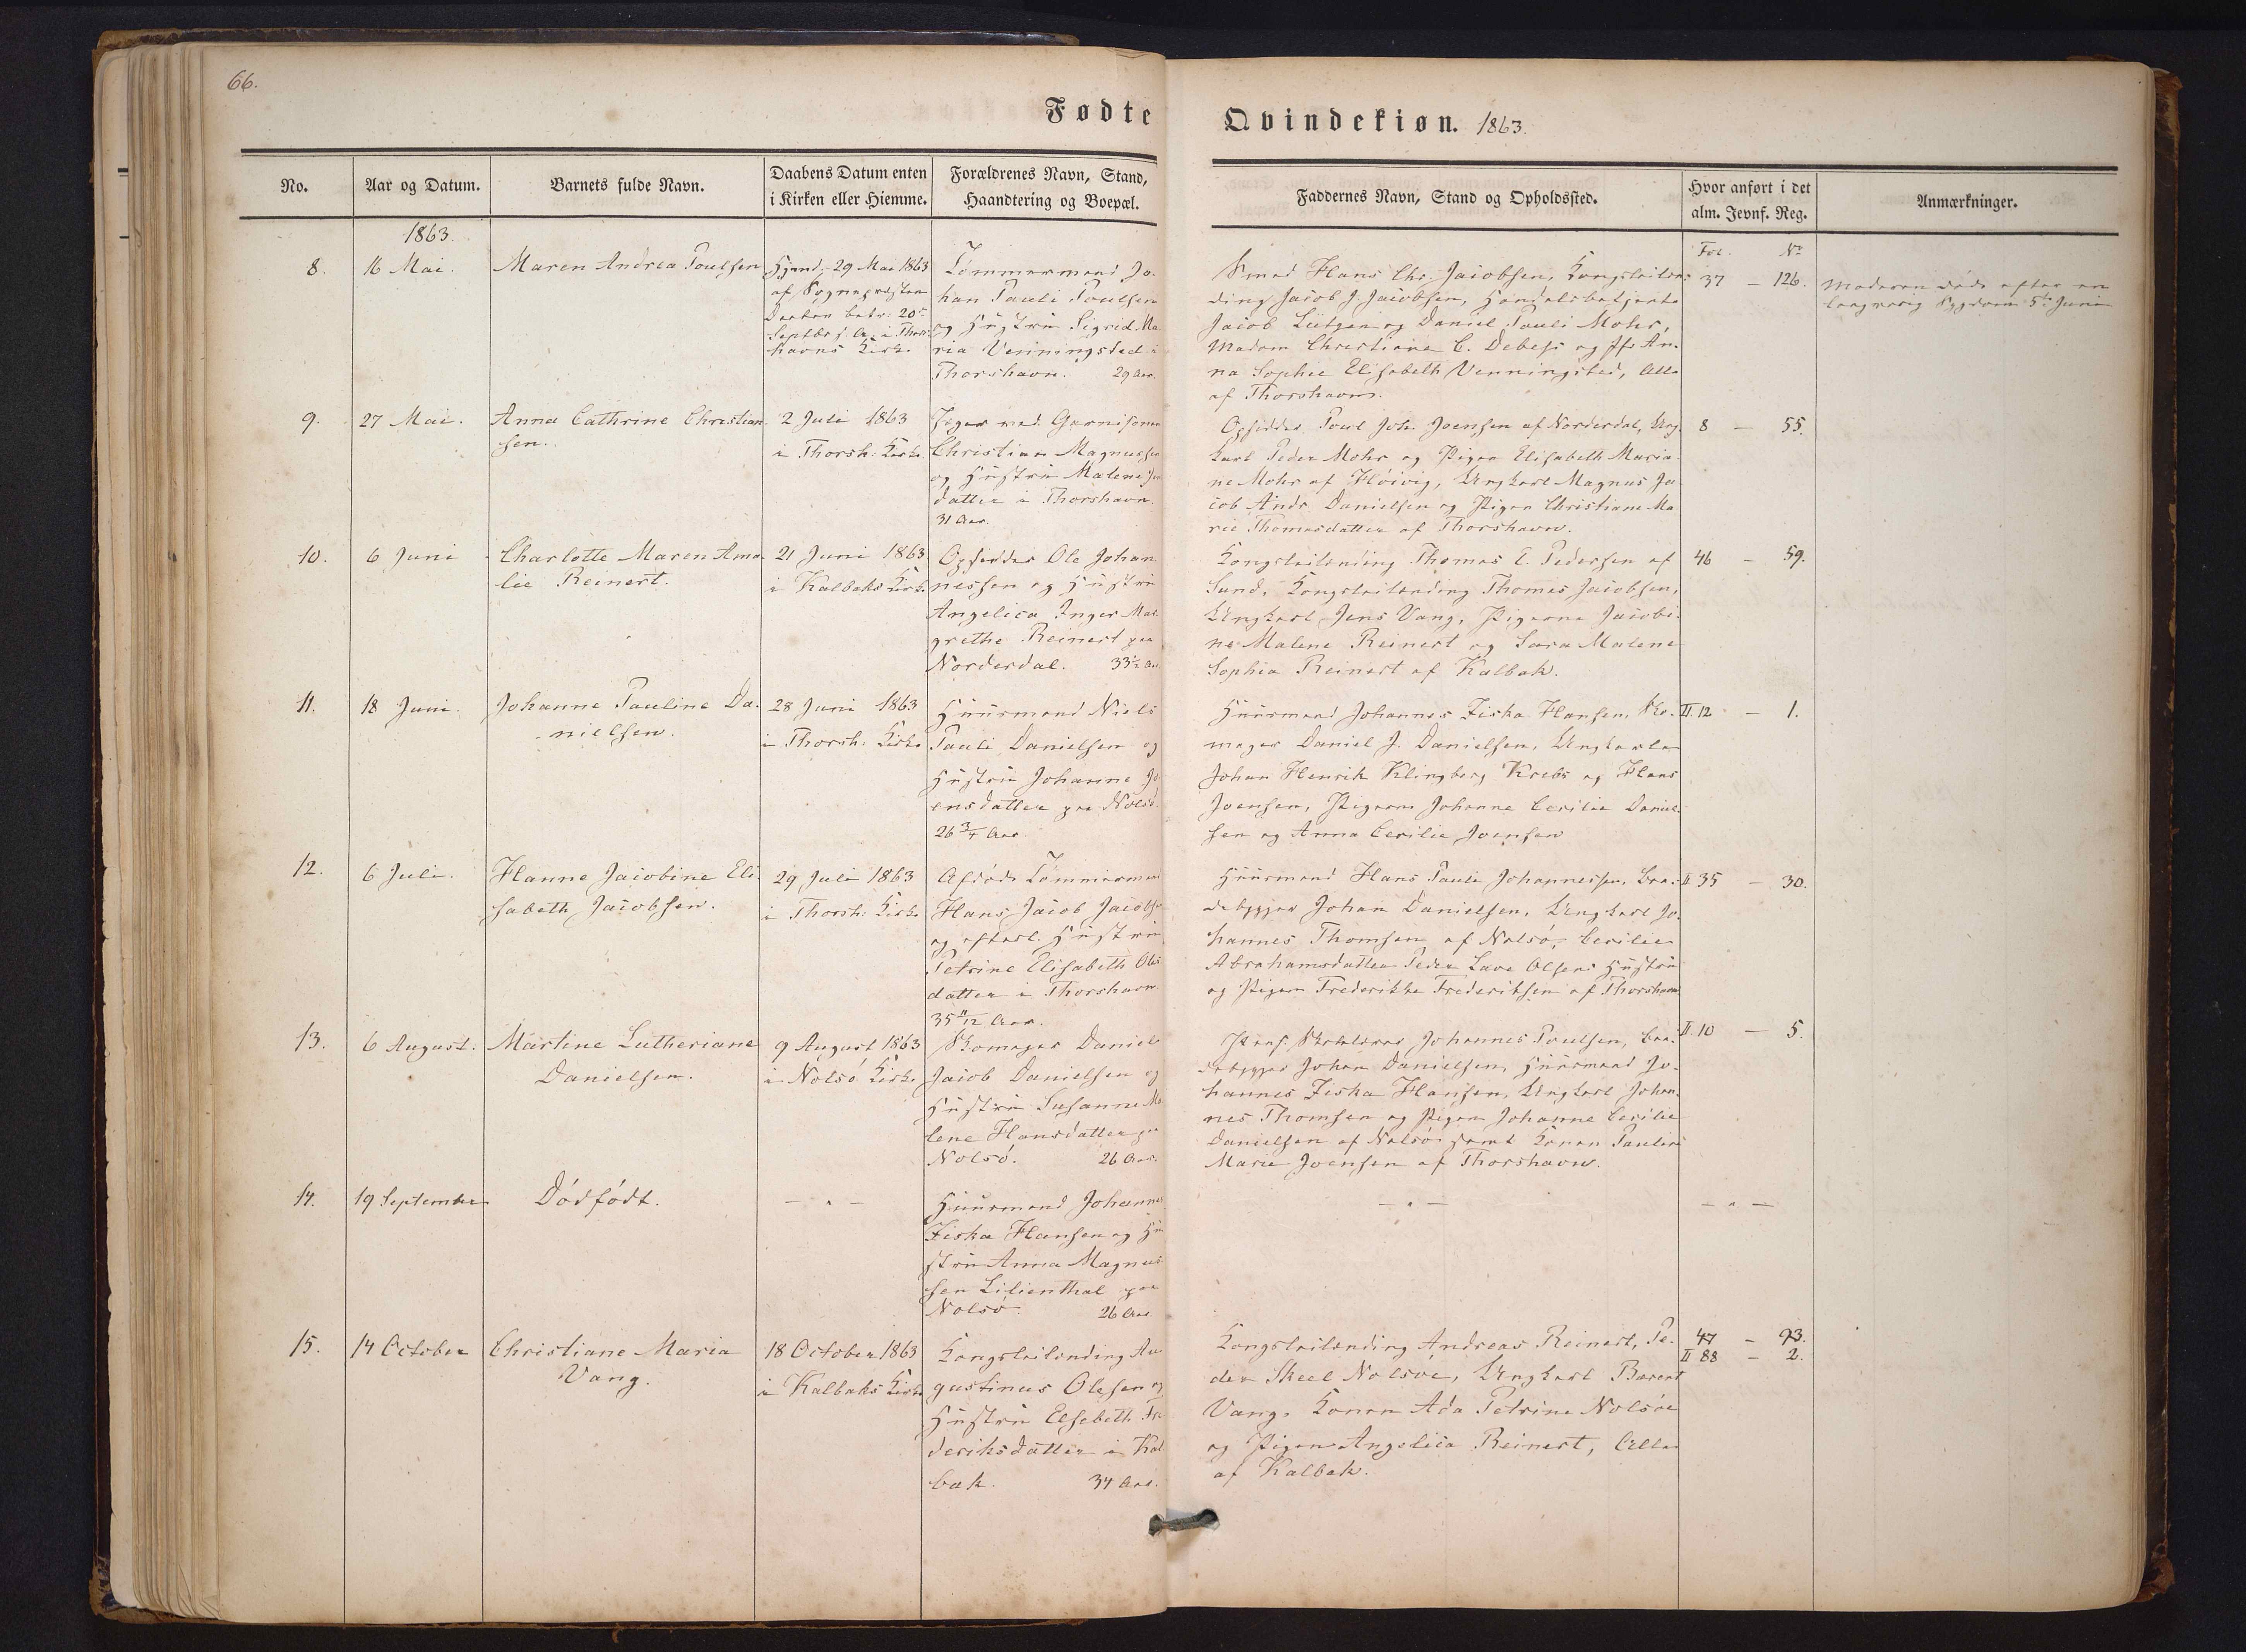 66.
Fødte
Qvindekiøn. 1863.
No.
Aar og Datum.
Barnets fulde Navn.
Daabens Datum enten
i Kirken eller Hiemme.
Forældrenes Navn, Stand,
Haandtering og Boepæl.
Faddernes Navn, Stand og Opholdssted.
Hvor anført i det
alm. Jevnf. Reg.
Anmærkninger.
1863.
Fol. No
8.
16 Mai.
Maren Andrea Poulsen
Hjemd. 29 Mai 1863
af Sognepræsten
Daaben bekr: 20de
Septbr s. A. i Thors-
havns Kirke
Tømmermand Jo-
han Pauli Poulsen
og Hustru Sigrid Ma-
ria Venningsted i
Thorshavn. 29 Aar.
Smed Hans Chr. Jacobsen, Kongsleilæn-
ding Jacob J. Jacobsen, Handelsbetjente
Jacob Lützen og Daniel Pauli Mohr,
Madam Christiane C. Debess og Jfr An-
na Sophie Elisabeth Venningsted, Alle
af Thorshavn.
37 — 126.
Moderen døde efter en
langvarig Sygdom 5te Junii
9.
27 Mai.
Anna Cathrine Christian-
sen.
2 Juli 1863
i Thorsh: Kirke
Jæger ved Garnisonen
Christian Magnussen
og Hustru Malene
datter i Thorshavn.
31 Aar.
Opsidder Poul Joh. Joensen af Norderdal, Ung-
karl Peder Mohr og Pigen Elisabeth Maria-
ne Mohr af Höivig, Ungkarl Magnus Ja-
cob Andr. Danielsen og Pigen Christiane Ma-
rie Thomasdatter af Thorshavn.
8 — 55.
10.
6 Juni
Charlotte Maren Ama-
lie Reinert.
21 Juni 1863
i Kalbaks Kirke
Opsidder Ole Johan-
nessen og Hustru
Angelica Inger Mar-
grethe Reinert paa
Norderdal. 33½ Aar
Kongsleilænding Thomas E. Pedersen af
Sund, Kongsleilænding Thomas Jacobsen,
Ungkarl Jens Vang, Pigerne Jacobi-
ne Malene Reinert og Sara Malene
Sophia Reinert af Kalbak.
46 — 59.
11.
18 Juni.
Johanne Pauline Da-
nielsen.
28 Juni 1863
i Thorsh: Kirke
Huusmand Niels
Pauli Danielsen og
Hustru Johanne Jo-
ensdatter paa Nolsö
26¾ Aar
Huusmand Johannes Ziska Hansen, Sko-
mager Daniel J. Danielsen, Ungkarle
Johan Henrik Klingberg Krebs og Hans
Joensen, Pigerne Johanne Cecilie Daniel-
sen og Anna Cecilie Joensen
II 12 — 1.
12.
6 Juli.
Hanne Jacobine Eli-
sabeth Jacobsen.
29 Juli 1863
i Thorsh: Kirke
Afdöde Tømmermand
Hans Jacob Jacobsen
og efterl. Hustru
Petrine Elisabeth Ols-
datter i Thorshavn
35 11/12 Aar.
Huusmand Hans Pauli Johannessen, Baa-
debygger Johan Danielsen, Ungkarl Jo-
hannes Thomsen af Nolsö, Cecilie
Abrahamsdatter Peder Lave Olsens Hustru
og Pigen Frederikke Frederiksen af Thorshavn
II 35 — 30.
13.
6 August.
Martine Lutheriane
Danielsen.
9 August 1863
i Nolsö Kirke
Skomager Daniel
Jacob Danielsen og
Hustru Susanne Ma-
lene Hansdatter paa
Nolsö. 26 Aar.
Skolelærer Johannes Poulsen, Baa-
debygger Johan Danielsen, Huusmand Jo-
hannes Ziska Hansen, Ungkarl Johan-
nes Thomsen og Pigen Johanne Cecilie
Danielsen af Nolsö samt Konen Pauline
Marie Joensen af Thorshavn.
II 10 — 5.
14.
19 September
Dödfödt.
— " —
Huusmand Johannes
Ziska Hansen og Hu-
stru Anna Magnus-
sen Lilienthal paa
Nolsö. 26 Aar
— " —
— " —
15.
14 October
Christiane Maria
Vang.
18 October 1863
i Kalbaks Kirke
Kongsleilænding Au-
gustinus Olesen og
Hustru Elsebeth Fre-
deriksdatter i Kal-
bak. 34 Aar.
Kongsleilænding Andreas Reinert, Pe-
der Skeel Nolsöe, Ungkarl Barent
Vang, Konen Ada Petrine Nolsöe
og Pigen Angelica Reinert, Alle
af Kalbak.
47 — 93.
II 88 — 2.